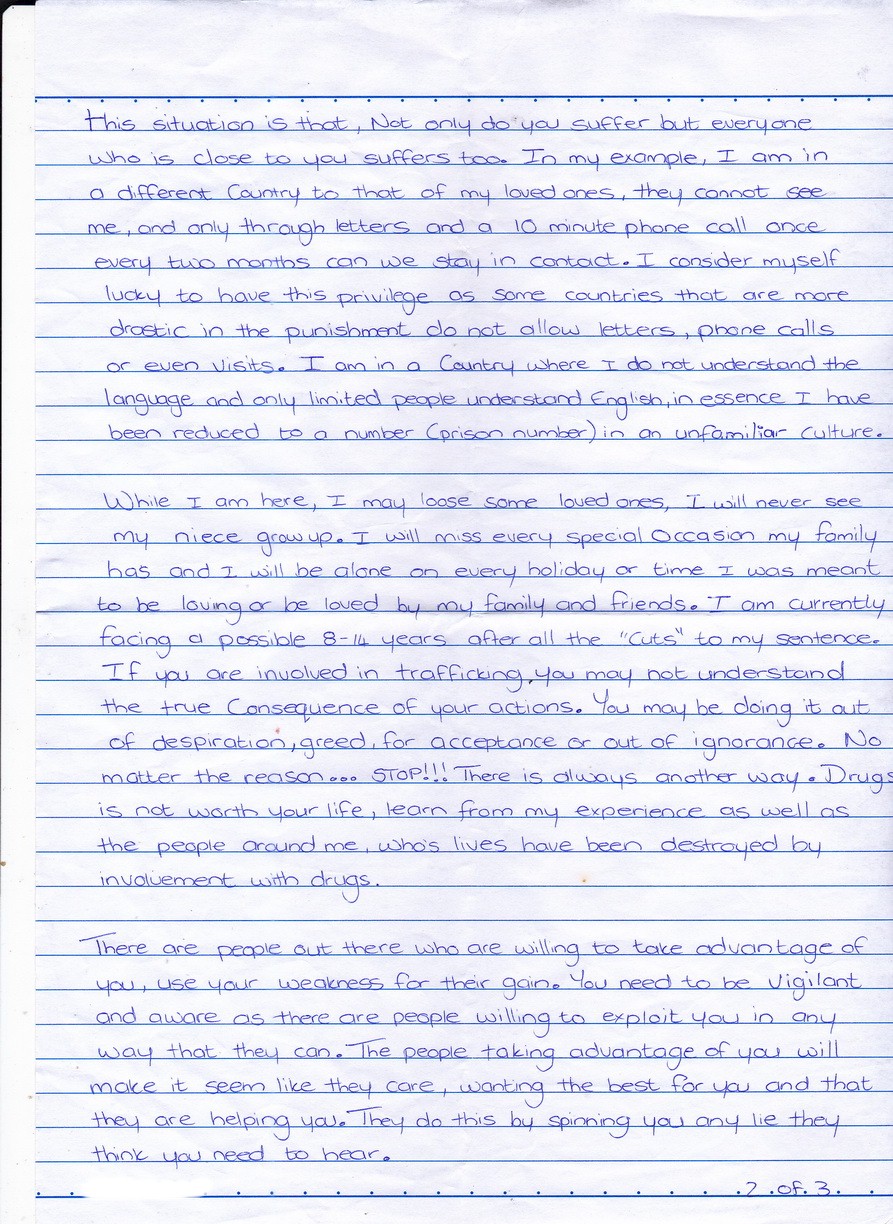 this situation is that, Not only do you suffer but everyone
who is close to you suffers too. In my example, I am in
a different Country to that of my loved ones, they cannot see
me, and only through letters and a 10 minute phone call once
every two months can we stay in contact. I consider myself
lucky to have this privilege as some countries that are more
drastic in the punishment do not allow letters, phone calls
or even visits. I am in a Country where I do not understand the
language and only limited people understand English, in essence I have
been reduced to a number (prison number) in an unfamiliar culture.
While I am here, I may loose some loved ones, I will never see
my niece grow up. I will miss every special Occasion my family
has and I will be alone on every holiday or time I was meant
to be loving or be loved by my family and friends. I am currently
facing a possible 8-14 years after all the "Cuts" to my sentence.
If you are involved in trafficking, you may not understand
the true Consequence of your actions. You may be doing it out
of despiration, greed, for acceptance or out of ignorance. No
matter the reason... STOP!!! There is always another way. Drugs
is not worth your life, learn from my experience as well as
the people around me, who's lives have been destroyed by
involvement with drugs.
There are people out there who are willing to take advantage of
you, use your weakness for their gain. You need to be Vigilant
and aware as there are people willing to exploit you in any
way that they can. The people taking advantage of you will
make it seem like they care, wanting the best for you and that
they are helping you. They do this by spinning you any lie they
think you need to hear.
2 of 3.